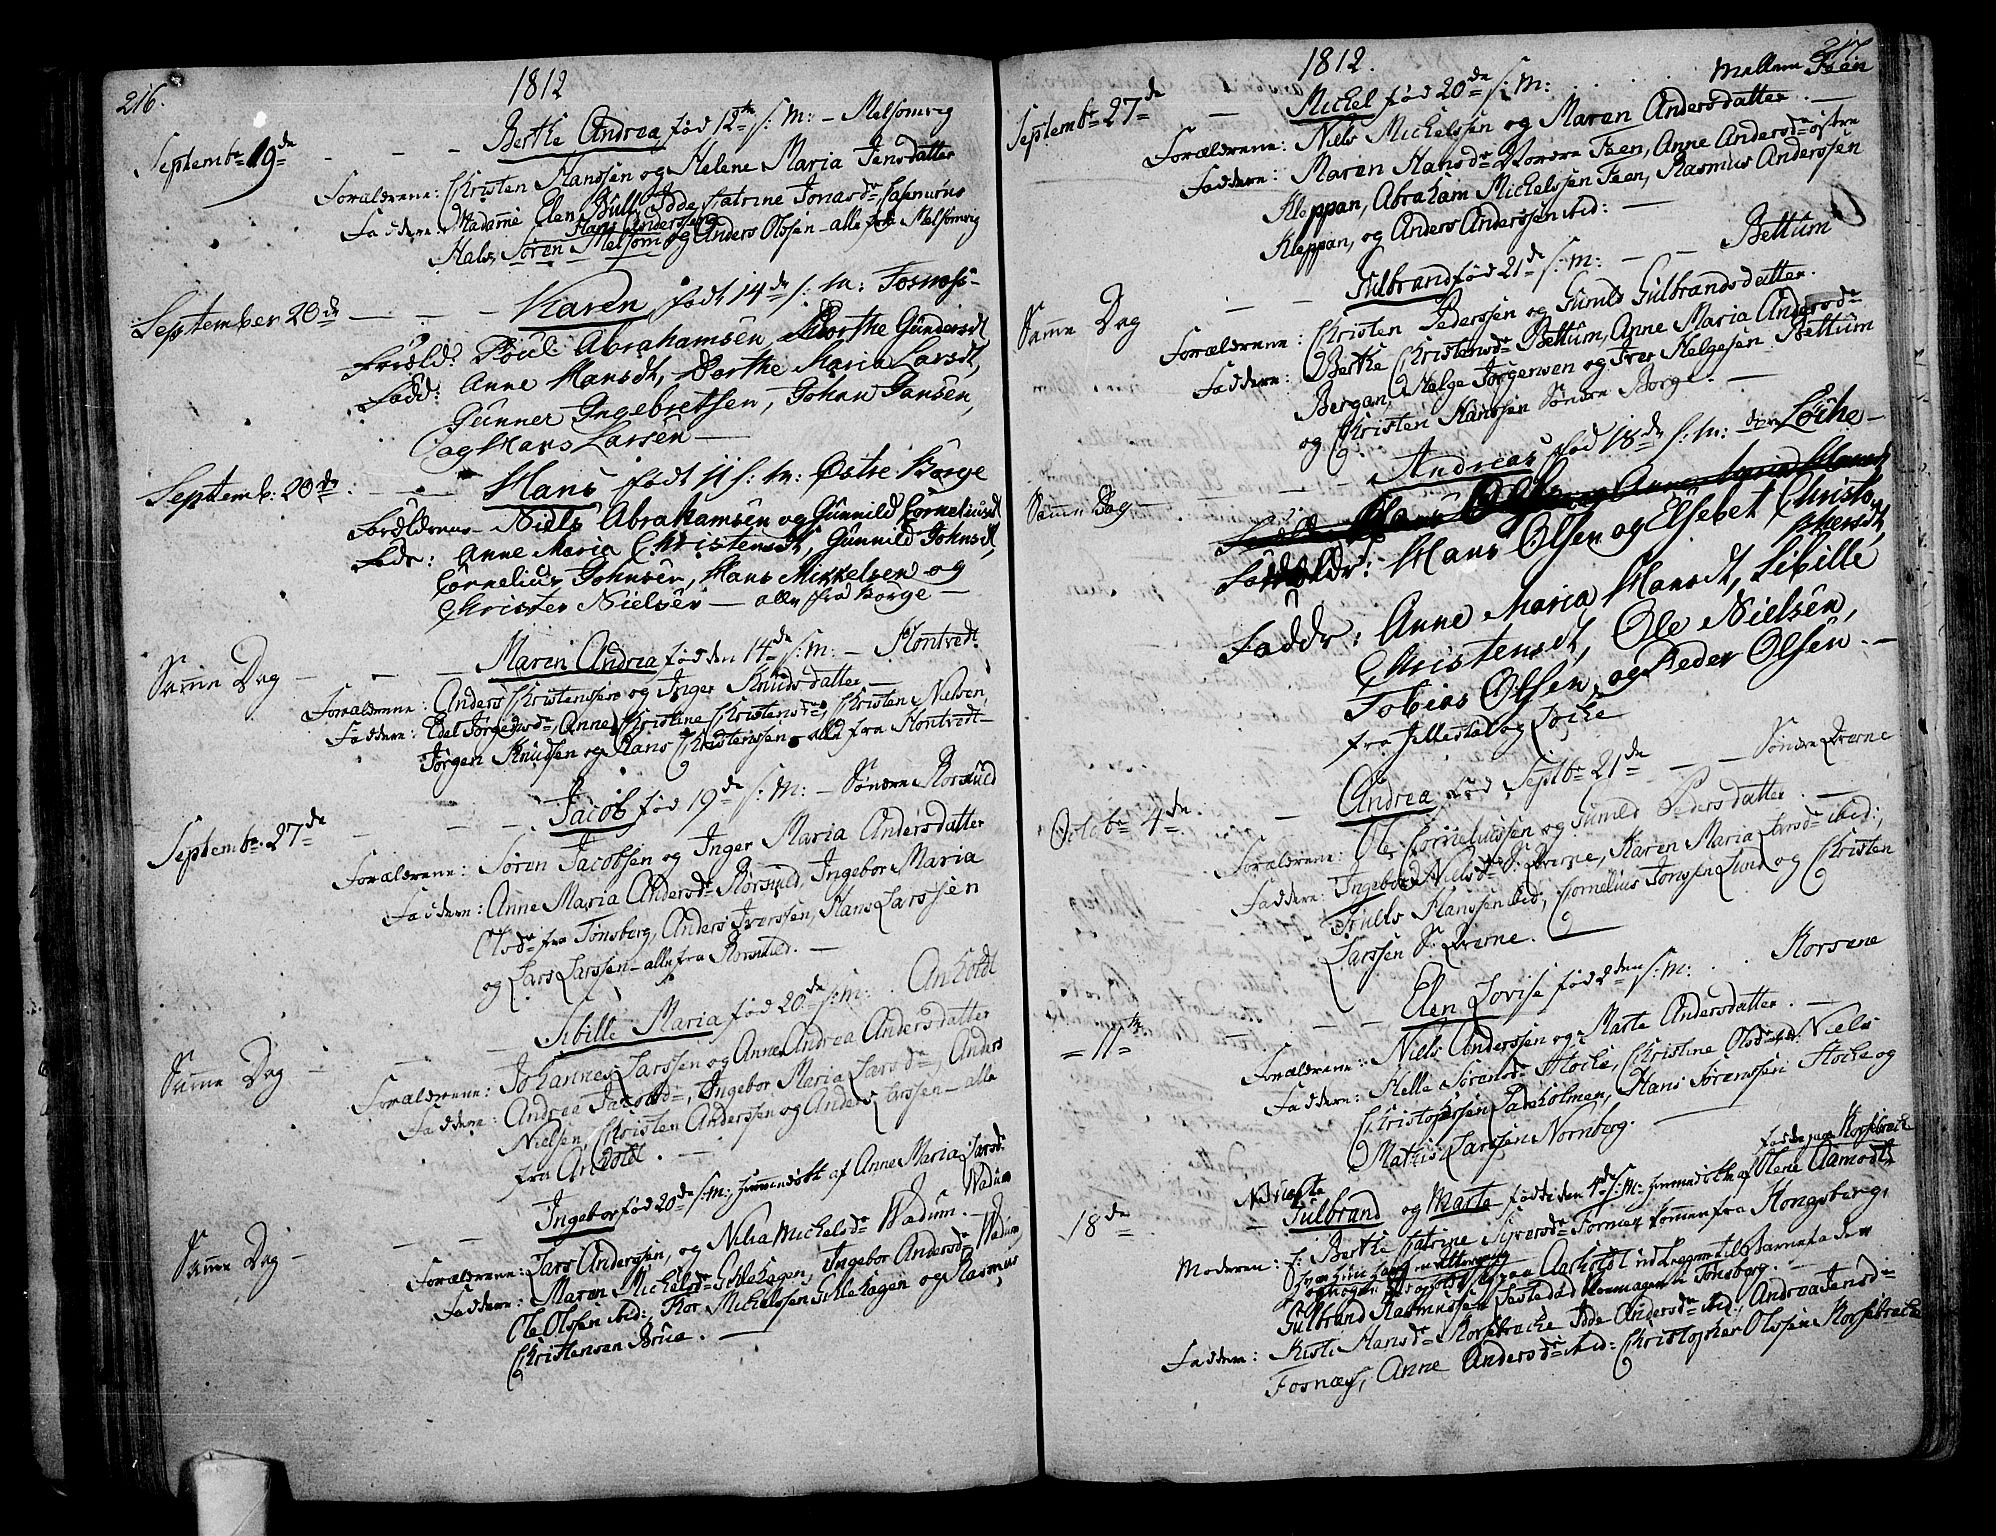 216.
1812
Septembr 19de – – – Berthe Andrea, fød 12te s: M: – Melsomvig
Forældrene: Christen Hanssen og Helene Maria Jensdatter
Faddere: Madamme Elen Bull, Idde Catrine Jonasdr
Hans Anderssen
Søren Melsom og Anders Olssen – alle fra Melsomvig
September 20de – – – Karen, født 14de s: M: Fosnæs –
Foræld: Poul Abrahamsen, Dorthe Gundersdt
Fadd: Anne Hansdt, Dorthe Maria Larsdt,
Gunner Ingebretsen, Johan Jansen,
og Hans Larsen –
Septemb: 20de – – – Hans født 11 s: M: Østre Borge
Forældrene – Niels Abrahamsen og Gunnild Corneliusdt
Fadr: Anne Maria Christensdt, Gunnild Johnsdt,
Cornelius Johnsen, Hans Mikkelsen og
Christen Nielsen – alle fra Borge –
Samme Dag – – – Maren Andrea fød den 14de s: M: – Hontvedt
Forældrene: Anders Christenssen og Inger Knudsdatter –
Faddere: Edel Jørgensdr, Anne Christine Christensdr, Christen Nielsen,
Jørgen Knudsen og Hans Christenssen, alle fra Hontvedt –
Septembr. 27de – – – Jacob fød 19de s: M: – Søndre Rorsuld
Forældrene: Søren Jacobsen og Inger Maria Andersdatter
Faddere: Anne Maria Andersdr Rorsuld, Ingebor Maria
Olsdr fra Tønsberg, Anders Iverssen, Hans Larssen
og Lars Larssen – alle fra Rorsuld. –
Samme Dag – – – Sibille Maria fød 20de s: M: Arholdt
Forældrene: Johannes Larssen og Anne Andrea Andersdatter
Faddere: Andrea Jacobsdr, Ingebor Maria Larsdr, Anders
Nielsen, Christen Anderssen og Anders Larssen – alle
fra Arholdt. –
Samme Dag – – – Ingebor fød 20de s: M: hjemmedøbt af Anne Maria Larsdr
Wadum
Forældrene: Lars Anderssen, og Nilia Michelsdr Wadum. –
Faddere: Maren Michelsdr Gillehagen, Ingebor Andersdr Wadum,
Ole Olssen ibid: Thor Michelssen Gillehagen og Rasmus
Christensen Brua. –
217
1812.
Septembr 27de – Michel fød 20de s: M: Mellem Feen
Forældrene: Niels Michelssen og Maren Andersdatter. –
Faddere: Maren Hansdr Nordre Feen, Anne Andersdr østre
Kleppan, Abraham Michelssen Feen, Rasmus Anderssen
Kleppan, og Anders Anderssen ibid: –
Samme Dag – – Gulbrand fød 21de s: M: – – Bettum
Forældrene: Christen Pederssen og Gunild Gulbrandsdatter.
Faddere: Berthe Christensdr Bettum, Anne Maria Andersdr
Bergan, Helge Jørgensen og Iver Helgesen Bettum
og Christen Hanssen Søndre Borge. –
Samme Dag – – – Andreas fød 18de s: M: Løche –
Forældr: Hans Olsen og Elsebet Christo-
phersdt,
Faddr: Anne Maria Hansdt, Sibille
Christensdt, Ole Nielsen,
Tobias Olsen, og Peder Olsen –
fra Jillestal og Løche
Octobr 4de – Andrea, fød Septbr 21de – – Søndre Qværne
Forældrene: Ole Corneliussen og Gunild Pedersdatter. –
Faddere: Ingebor Nielsdr S: Qværne, Karen Maria Larsdr ibid:,
Truls Hanssen ibid, Cornelius Jonssen Lund og Christen
Larssen S: Qværne. –
– 11te – – – Elen Lovise fød 2den s: M: Korsene
Forældrene: Niels Anderssen og Marte Andersdatter. –
Faddere: Helle Sørensdr Stocke, Christine Olsdr ibid: Niels
Christopherssen Ladeholmen, Hans Sørenssen Stocke og
Mathis Larssen Nornberg. –
18de – Gulbrand og Marte fødte den 4de s: M: hjemmedøbte af Olene Aamodt,
Moderen: Berthe Catrine Siversdr kommen fra Kongsberg,
Gulbrand Rasmussen Tønsberg. –
Faddere: Kisti Hansdr Korsebrecke, Idde Andersdr ibid:, Andrea Jensdr
Fosnæs, Anne Andersdr ibid: Christopher Olssen Korsebrecke